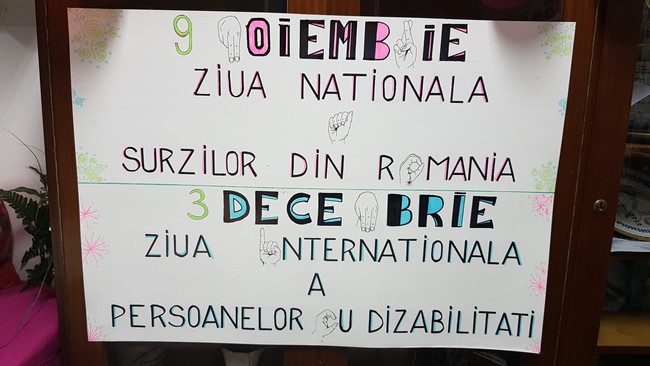 9 OIEMB IE
ZIUA NATIONALA
SURZILOR DIN R MANIA
3 DECE BRIE
ZIUA NTERNATIONALA
A
PERSOANELOR U DIZABILITATI